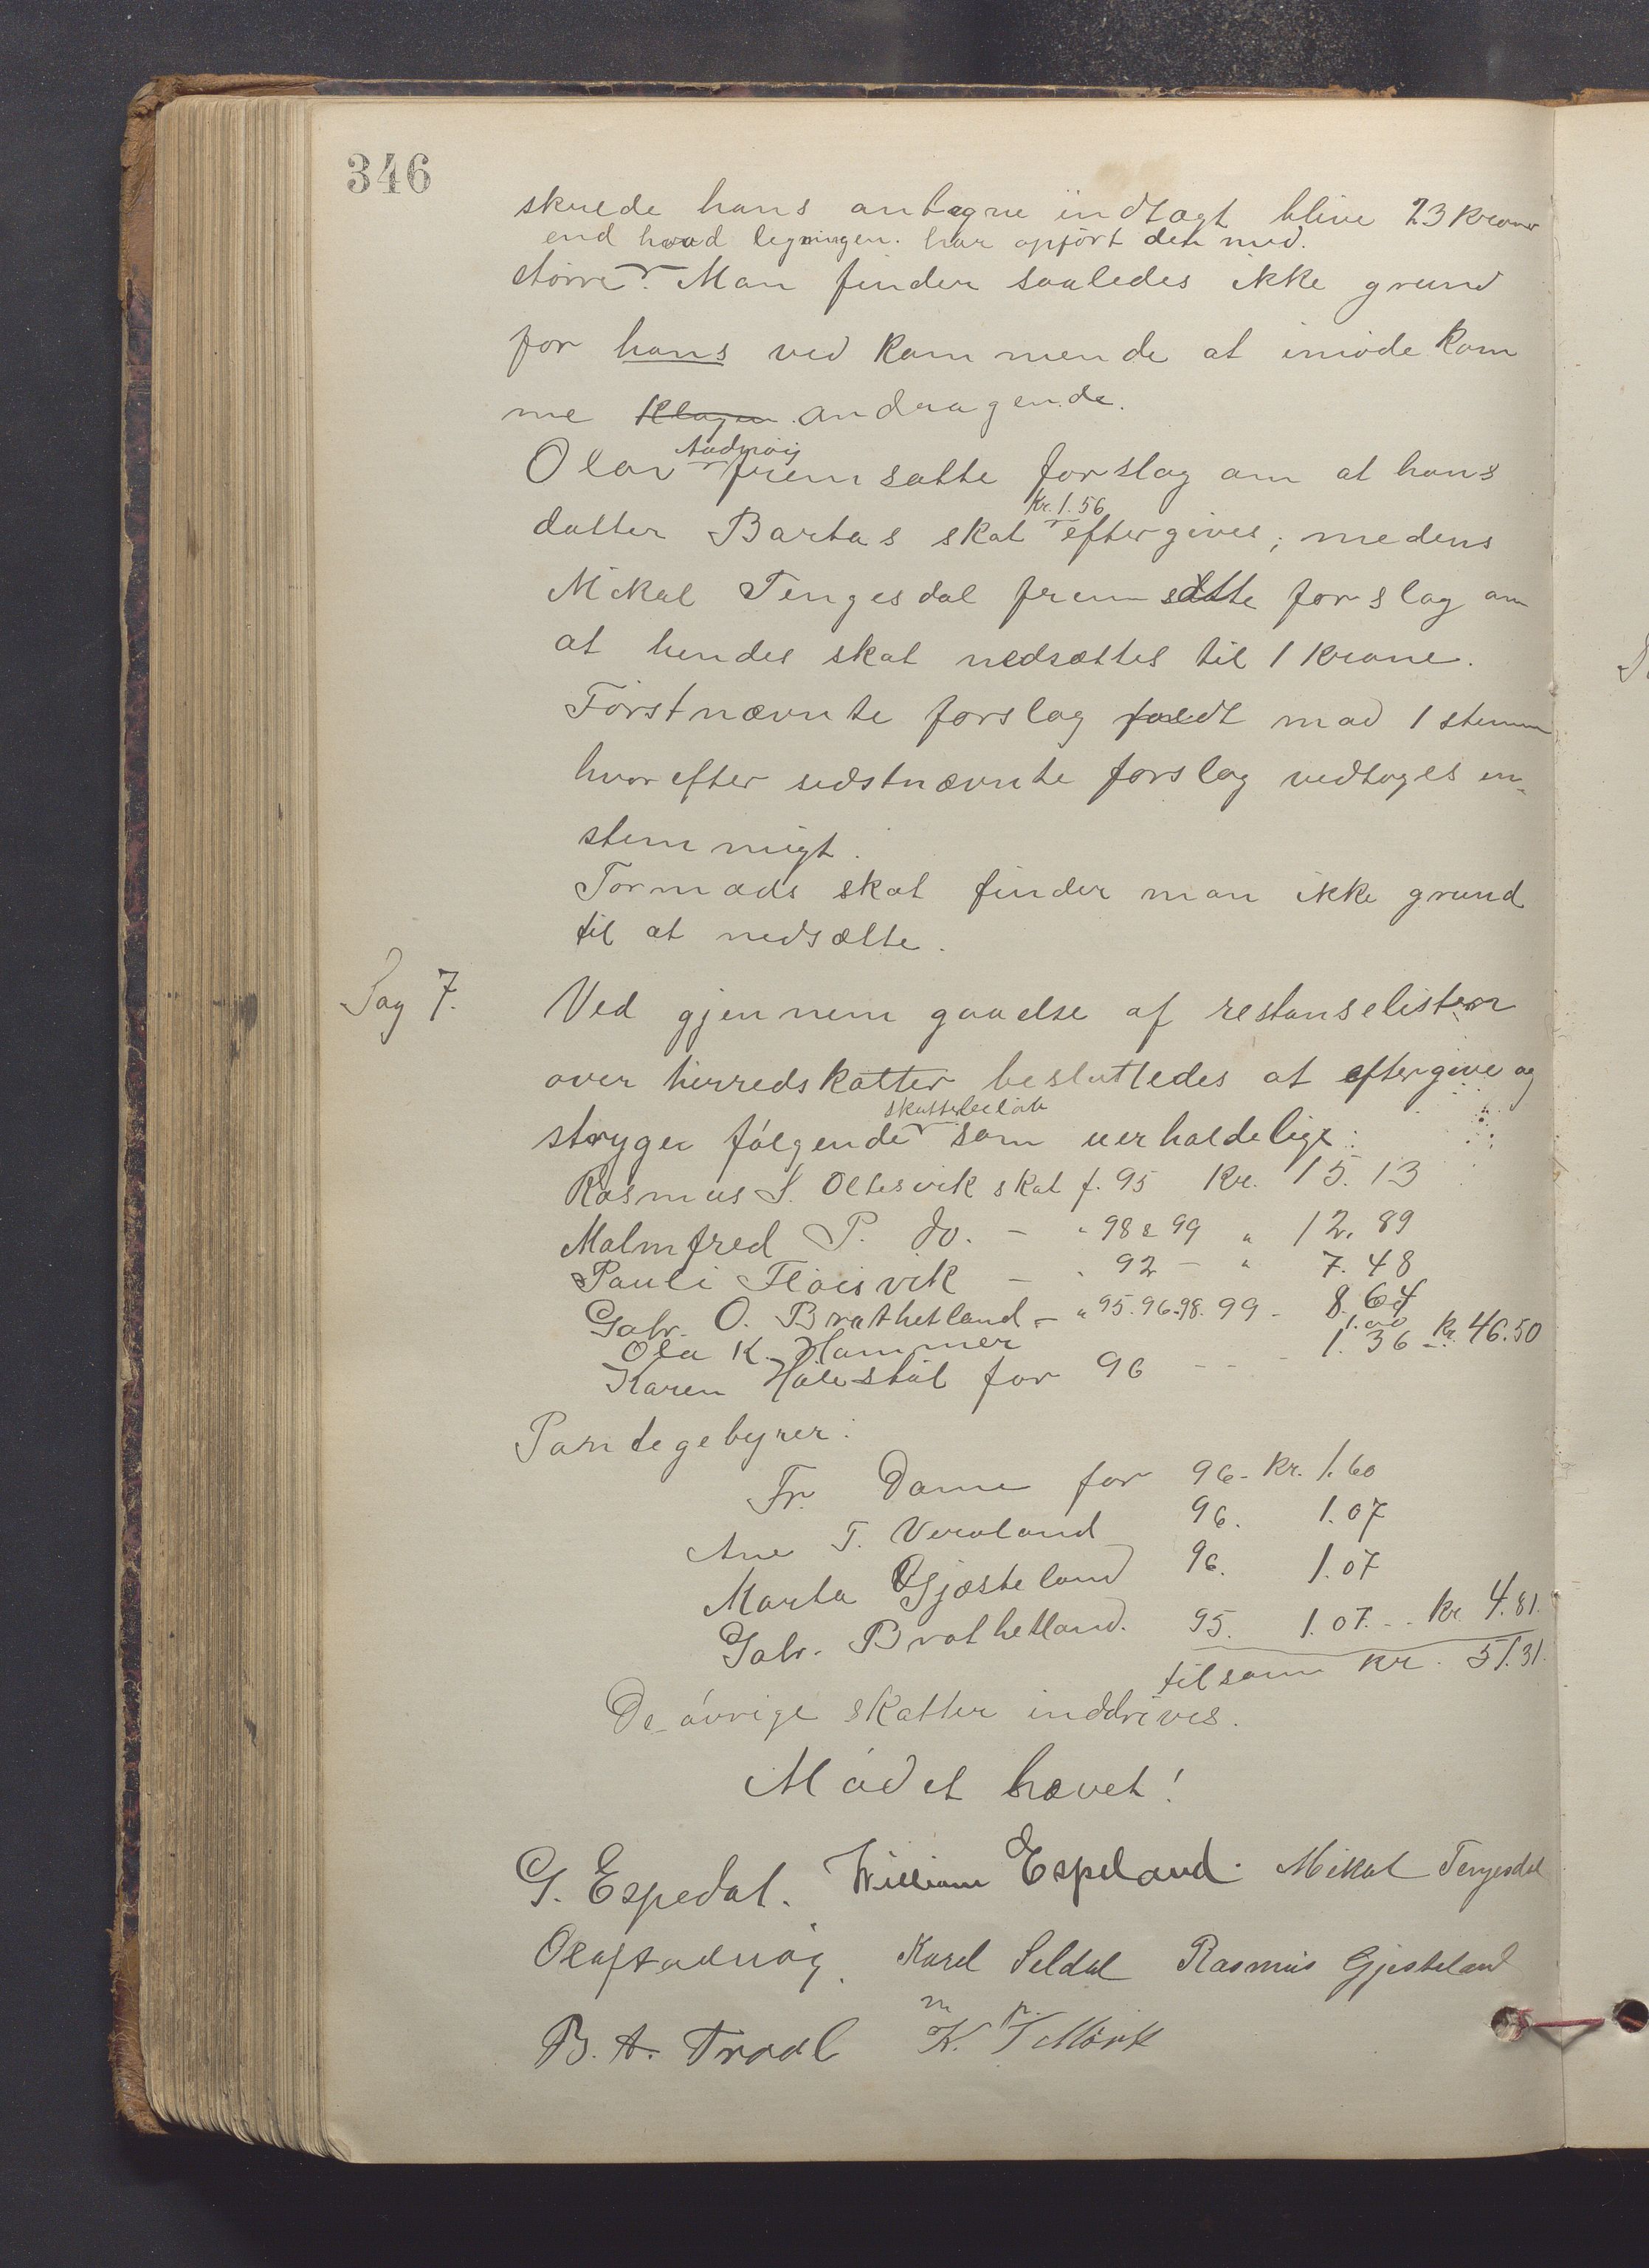 346
skulde hans antagne indtægt blive 23 kroner
end hvad ligningen har opført den med.
større. Man finder saaledes ikke grund
for hans ved kommende at imøde kom
me Klagen andragende.
Aadnøig
Olav fremsatte forslag om at hans
Kr. 1.56
datter Bartas skat eftergives; medens
Mikal Tengesdal fremsatte forslag om
at hendes skat nedsættes til 1 krone.
Førstnævnte forslag faldt mod 1 stemme
hvorefter sidstnævnte forslag vedtoges en-
stemmigt.
Tormods skat finder man ikke grund
til at nedsætte.
Sag 7.
Ved gjennemgaaelse af restanselisten
over herredskatter besluttedes at eftergive og
skattebeløb
stryge følgende som uerholdelige:
Rasmus S. Oltesvik skat f. 95 Kr. 15.13
Malmfred P. do. - " 98 & 99 " 12.89
Pauli Fløisvik - " 92 - " 7.48
Gabr. O. Brathetland - " 95.96.98.99 - 8.64
Ola K. Hammer 1.00
Karen Holestøl for 96 - - - 1.36 - Kr. 46.50
Pantegebyrer:
Fr. Dame for 96 - Kr. 1.60
Ane T. Veraland 96. 1.07
Marta Gjæsteland 96. 1.07
Gabr. Brathetland. 95. 1.07. - - Kr. 4.81.
tilsam Kr. 51.31.
De øvrige skatter inddrives.
Mødet hævet!
G. Espedal. William Espeland. Mikal Tengesdal
Olaf Aadnøig. Karl Seldal Rasmus Gjesteland
B. A. Træal K. T Mørk